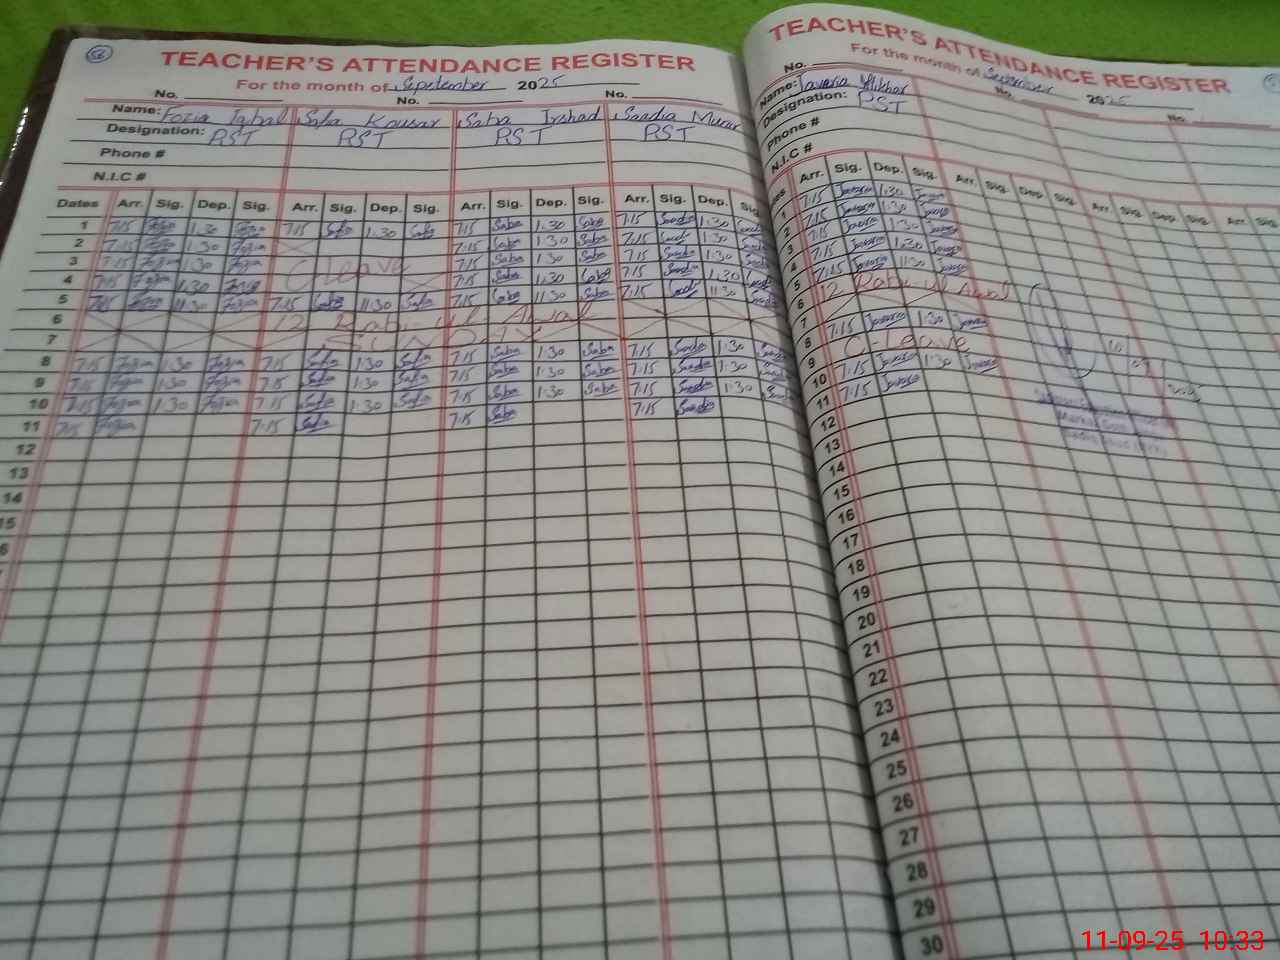 56
TEACHER'S ATTENDANCE REGISTER
For the month of September 2025
No. No. No.
Name: Fozia Iqbal Safa Kousar Saba Irshad Saadia Munir
Designation: PST PST PST PST
Phone #
N.I.C #
Dates Arr. Sig. Dep. Sig. Arr. Sig. Dep. Sig. Arr. Sig. Dep. Sig. Arr. Sig. Dep. Sig.
1 7:15 Fozia 1:30 Fozia 7:15 Safa 1:30 Safa 7:15 Saba 1:30 Saba 7:15 Saadia 1:30 Saadia
2 7:15 Fozia 1:30 Fozia 7:15 Saba 1:30 Saba 7:15 Saadia 1:30 Saadia
3 7:15 Fozia 1:30 Fozia C Leave 7:15 Saba 1:30 Saba 7:15 Saadia 1:30 Saadia
4 7:15 Fozia 1:30 Fozia 7:15 Saba 1:30 Saba 7:15 Saadia 1:30 Saadia
5 7:15 Fozia 11:30 Fozia 7:15 Safa 11:30 Safa 7:15 Saba 11:30 Saba 7:15 Saadia 11:30 Saadia
6 12 Rabi ul Awal
7 SUNDAY
8 7:15 Fozia 1:30 Fozia 7:15 Safa 1:30 Safa 7:15 Saba 1:30 Saba 7:15 Saadia 1:30 Saadia
9 7:15 Fozia 1:30 Fozia 7:15 Safa 1:30 Safa 7:15 Saba 1:30 Saba 7:15 Saadia 1:30 Saadia
10 7:15 Fozia 1:30 Fozia 7:15 Safa 1:30 Safa 7:15 Saba 1:30 Saba 7:15 Saadia 1:30 Saadia
11 7:15 Fozia 7:15 Safa 7:15 Saba 7:15 Saadia
12
13
14
15
6
TEACHER'S ATTENDANCE REGISTER
For the month of September 2025
No. No. No.
Name: Javaria Iftikhar
Designation: PST
Phone #
N.I.C #
Arr. Sig. Dep. Sig. Arr. Sig. Dep. Sig. Arr. Sig. Dep. Sig. Arr. Sig.
1 7:15 Javaria 1:30 Javaria
2 7:15 Javaria 1:30 Javaria
3 7:15 Javaria 1:30 Javaria
4 7:15 Javaria 1:30 Javaria
5 7:15 Javaria 11:30 Javaria
6 12 Rabi ul Awal
7
8 7:15 Javaria 1:30 Javaria
9 C-Leave
10 7:15 Javaria 1:30 Javaria
11 7:15 Javaria
12
13
14
15
16
17
18
19
20
21
22
23
24
25
26
27
28
29
30
10 09 2025
11-09-25 10:33